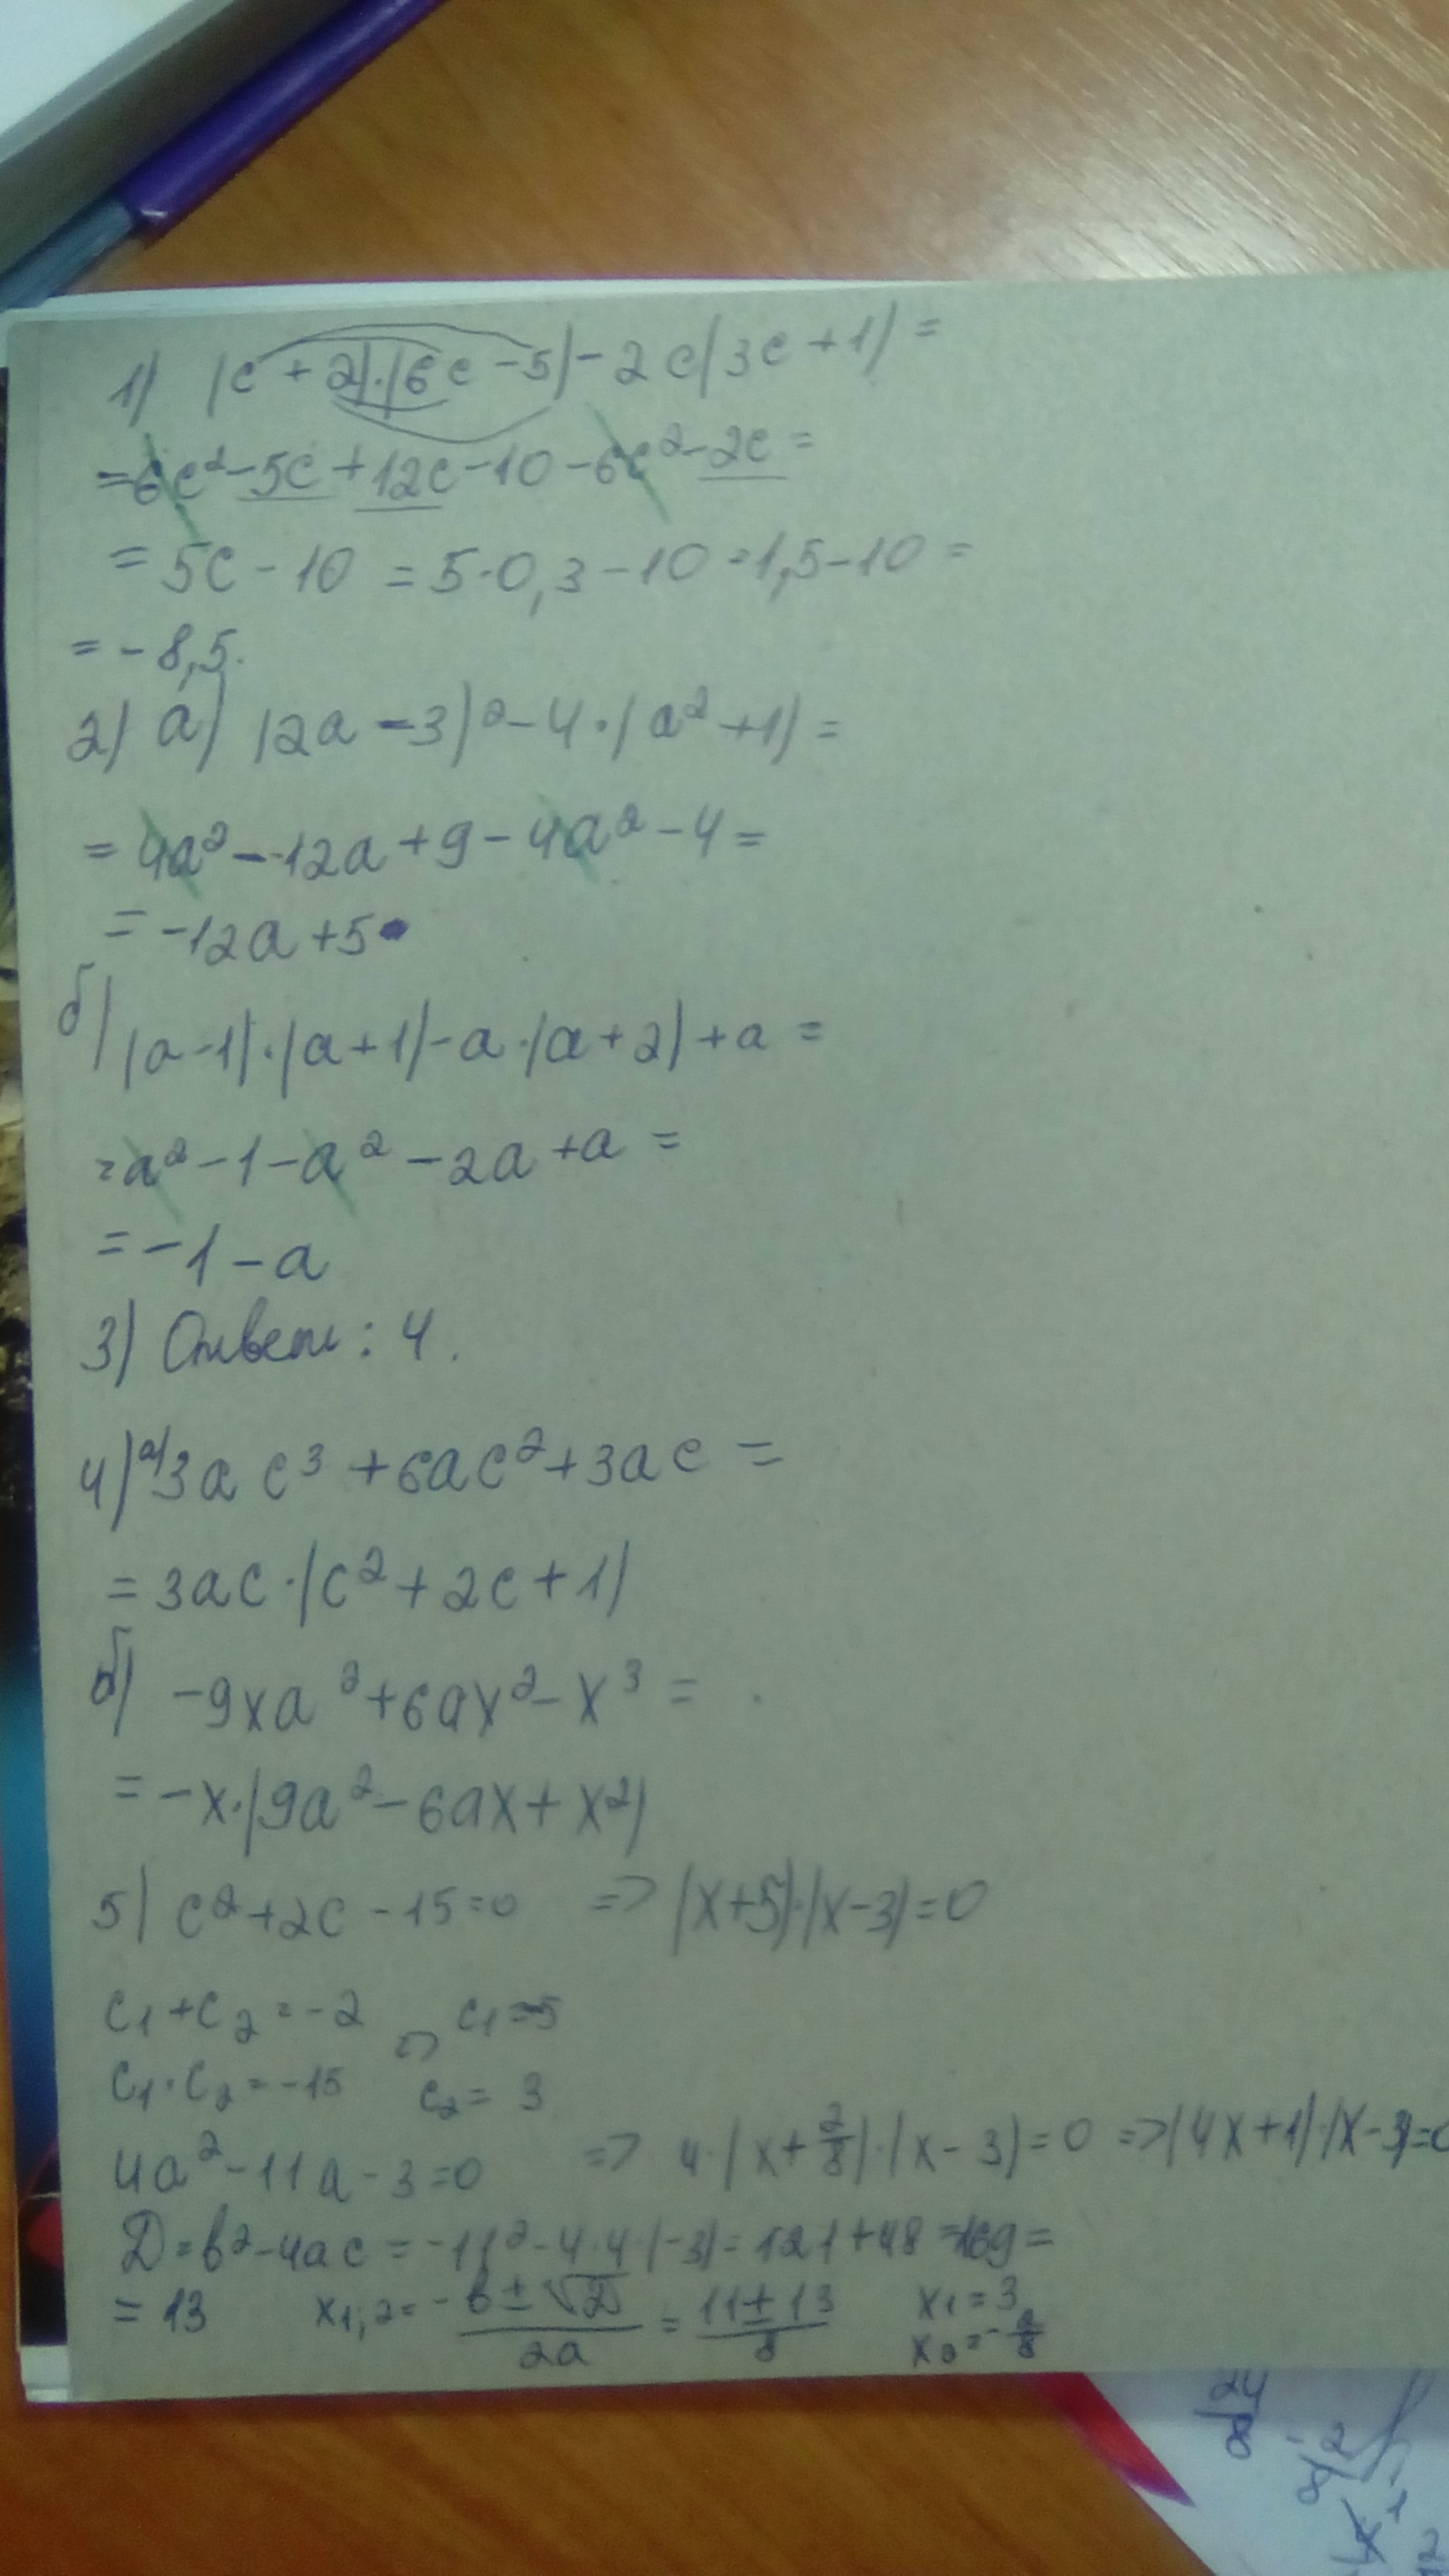 1) (c + 2)·(6c - 5) - 2c(3c + 1) =
= 6c² - 5c + 12c - 10 - 6c² - 2c =
= 5c - 10 = 5·0,3 - 10 = 1,5 - 10 =
= - 8,5.
2) а) (2a - 3)² - 4·(a² + 1) =
= 4a² - 12a + 9 - 4a² - 4 =
= -12a + 5
б) (a - 1)·(a + 1) - a·(a + 2) + a =
= a² - 1 - a² - 2a + a =
= -1 - a
3) Ответ: 4.
4) а) 3ac³ + 6ac² + 3ac =
= 3ac·(c² + 2c + 1)
б) -9xa² + 6ax² - x³ =
= -x·(9a² - 6ax + x²)
5) c² + 2c - 15 = 0 => (x+5)·(x-3) = 0
c₁ + c₂ = -2 <=> c₁ = -5
c₁·c₂ = -15 c₂ = 3
4a² - 11a - 3 = 0 => 4·(x + 2/8)·(x - 3) = 0 => (4x+1)·(x-3)=0
D = b² - 4ac = -11² - 4·4·(-3) = 121 + 48 = 169 =
= 13 x₁,₂ = -b ± √D / 2a = 11 ± 13 / 8 x₁ = 3
x₂ = -2/8
24/8
-2/8